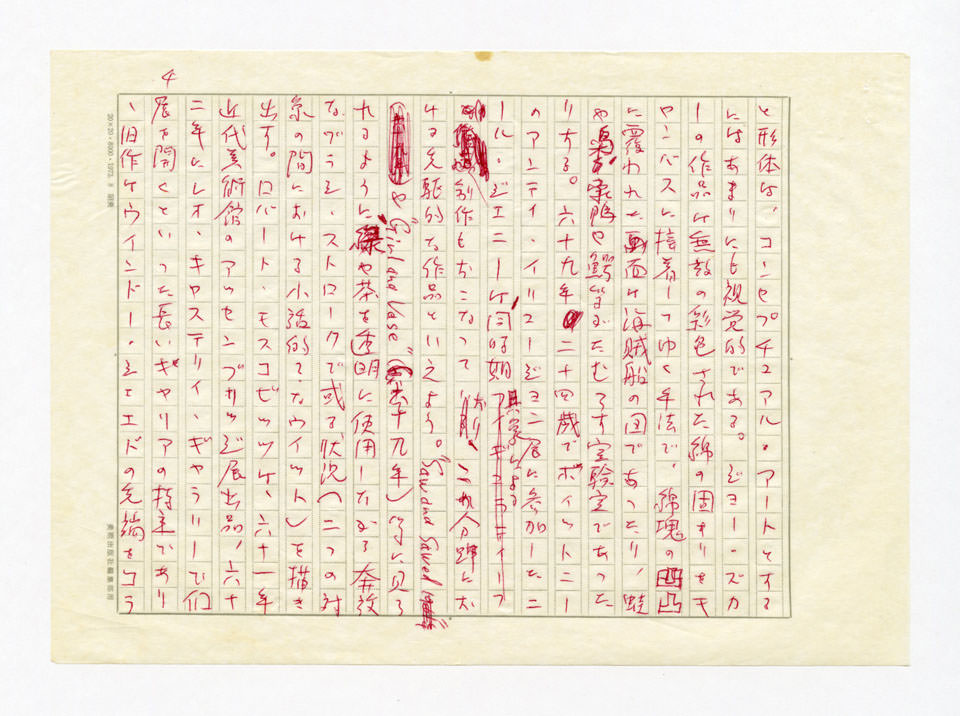 4
と形体は、コンセプチュアル・アートとする
にはあまりにも視覚的である。ジョー・ズカ
ーの作品は無数の彩色された綿の固まりをキ
ャンバスに接着してゆく手法で、綿塊の凸凹
に覆われた画面は海賊船の図であったり、
や 鰐等がたむろする実験室であった
りする。六十九年二十四歳でホイットニー
のアンティ・イリュージョン展に参加したニ
ール・ジェニーは同時期 具象による
創作もおこなって おり、この分野にお
ける先駆的な作品といえよう。"Saw and Sawed"
や "Girl and Vase" (六十九年) 等に見ら
れるように、緑や茶を透明に使用しながら奔放
なブラシ・ストロークで或る状況(二つの対
象の間における小話的でウイット)を描き
出す。ロバート・モスコビッツは、六十一年
近代美術館のアッセンブリッジ展出品、六十
二年にレオ・キャステリィ・ギャラリーで個
展を開くといった長いキャリアの持主であり
、旧作はウインドー・シェードの先端をコラ
20×20・8000・1973. 8
美術出版社編集部用